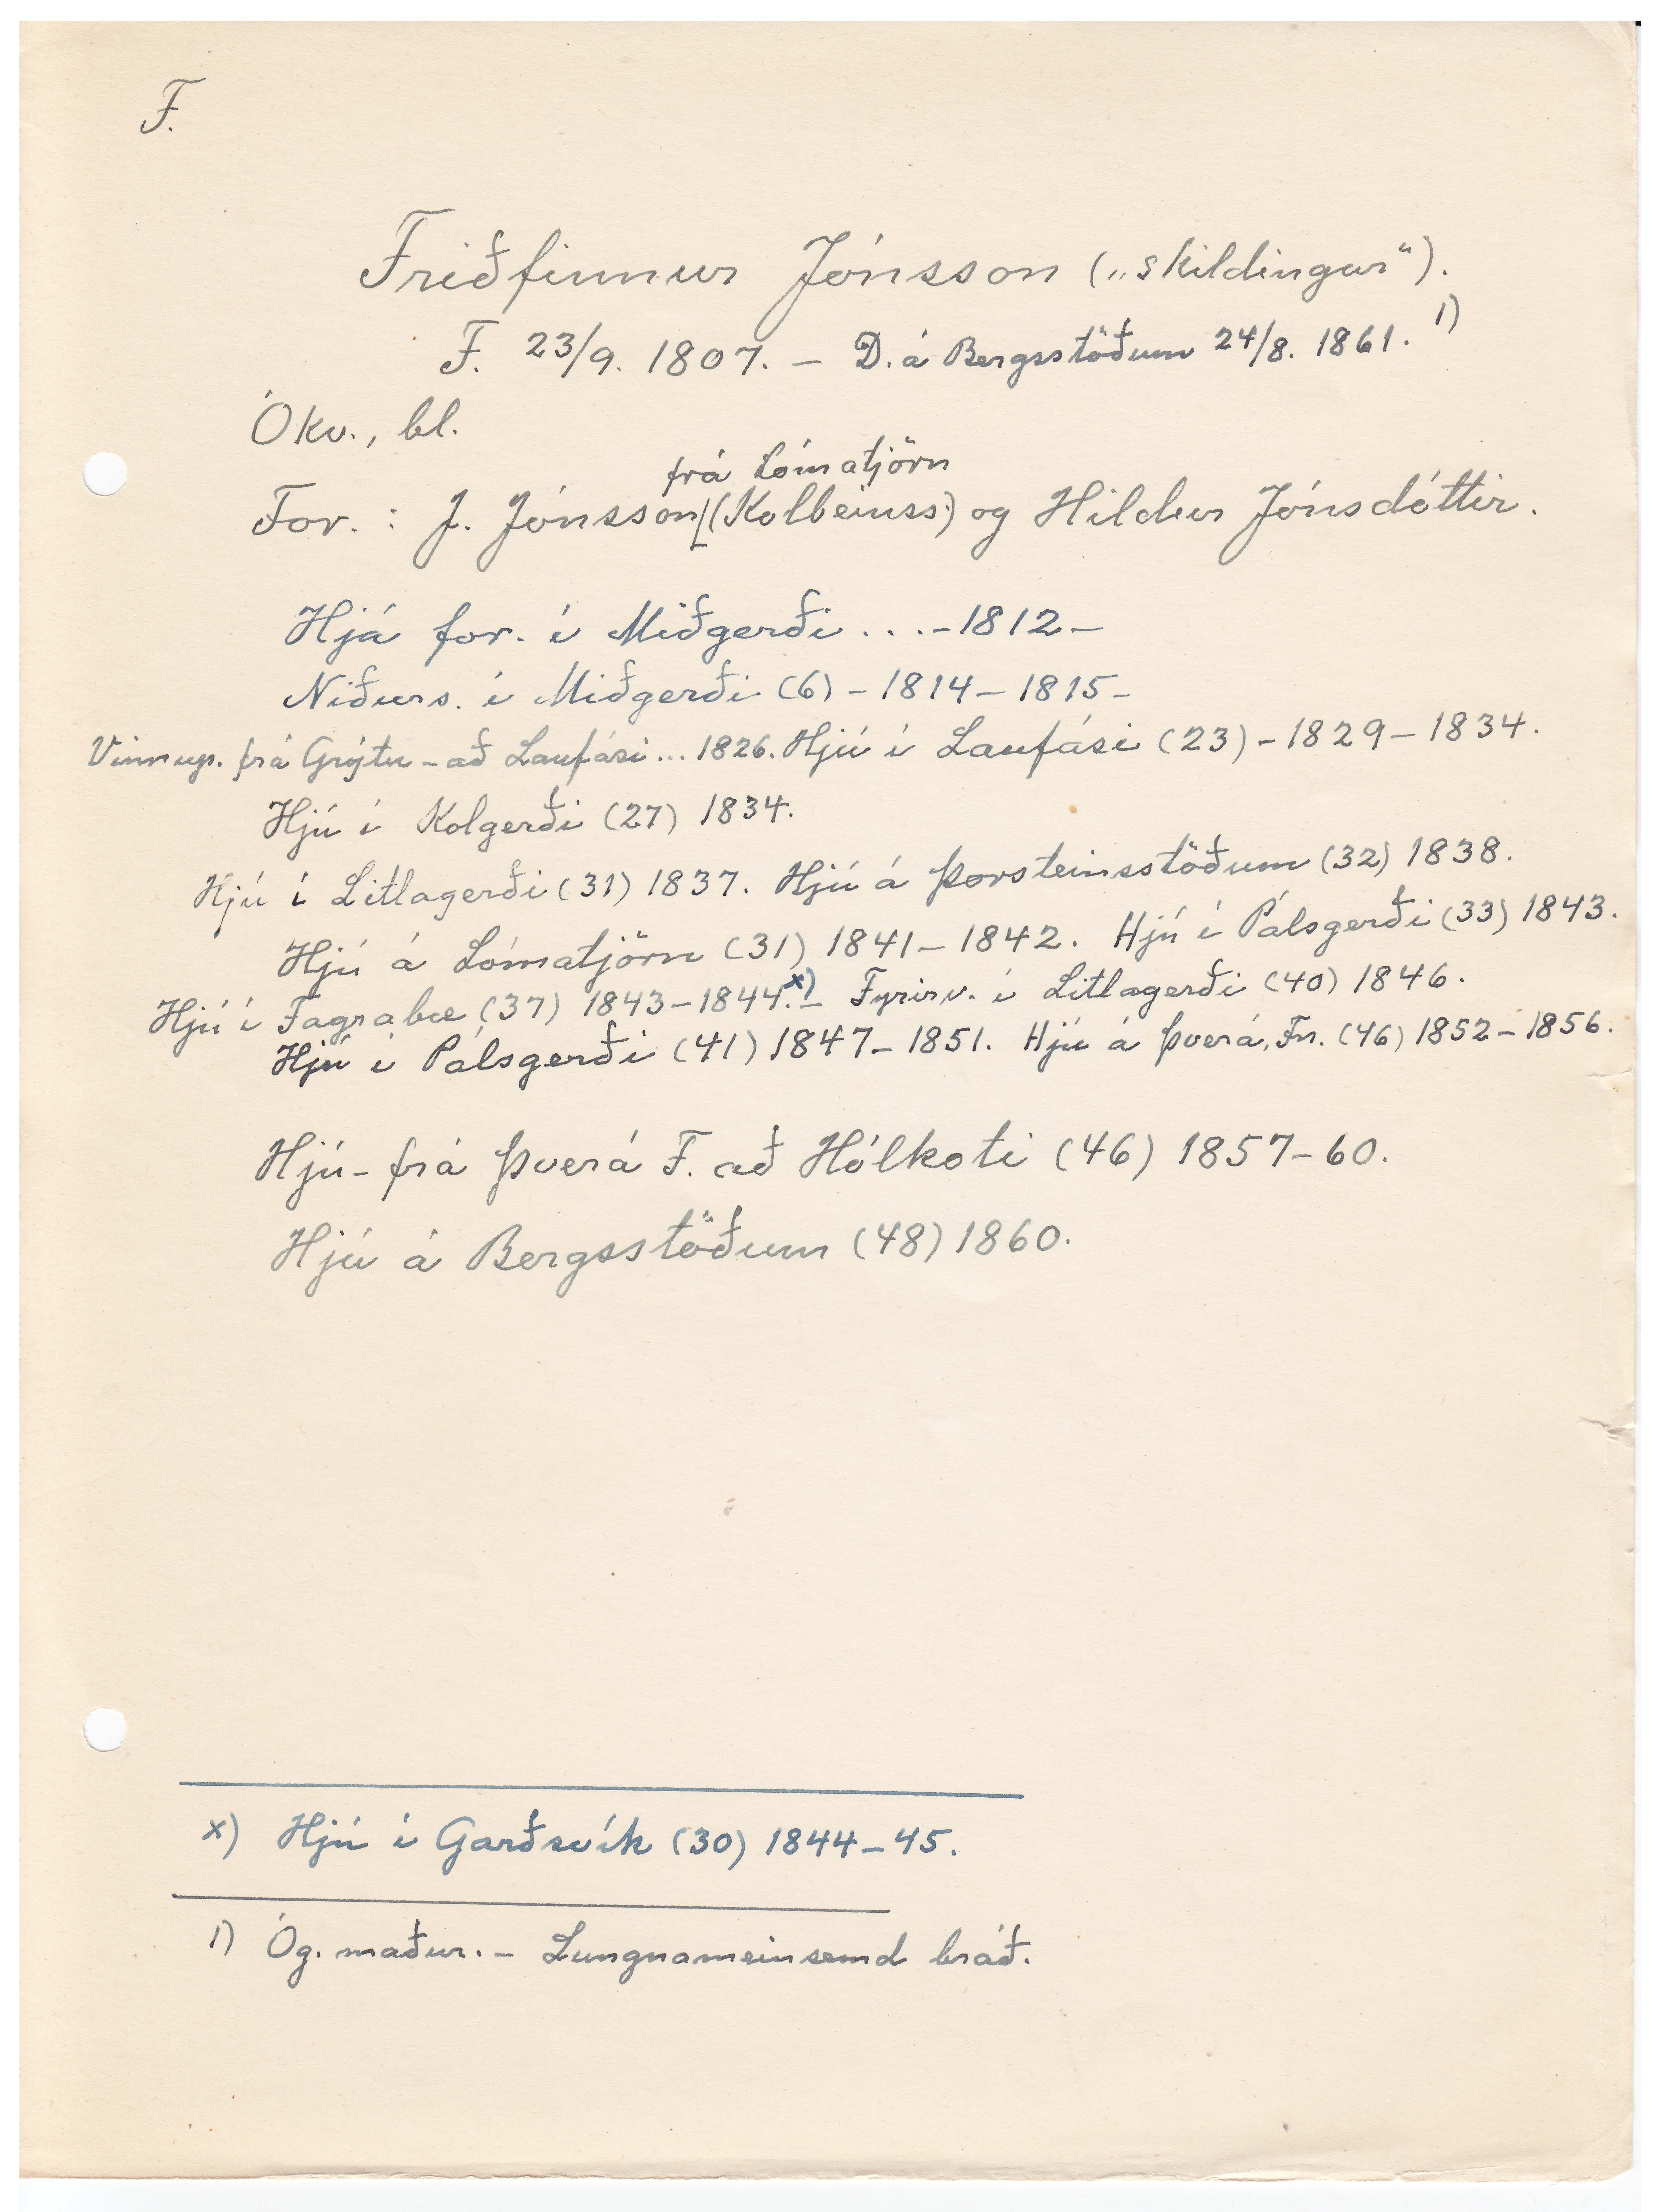 F.
Friðfinnur Jónsson („skildingur“).
F. 23/9. 1807. – D. á Bergsstöðum 24/8. 1861. 1)
Ókv., bl.
frá Lómatjörn
For. : J. Jónsson [(Kolbeinss.) og Hildur Jónsdóttir.
Hjá for. í Miðgerði . . . – 1812 –
Niðurs. í Miðgerði (6) – 1814 – 1815 –
Vinnup. frá Grýtu – að Laufási ... 1826. Hjú í Laufási (23) – 1829 – 1834.
Hjú í Kolgerði (27) 1834.
Hjú í Litlagerði (31) 1837. Hjú á Þorsteinsstöðum (32) 1838.
Hjú á Lómatjörn (31) 1841 – 1842. Hjú í Pálsgerði (33) 1843.
Hjú í Fagrabæ (37) 1843 – 1844. x) – Fyrirv. í Litlagerði (40) 1846.
Hjú í Pálsgerði (41) 1847 – 1851. Hjú á Þverá, Fn. (46) 1852 – 1856.
Hjú – frá Þverá F. að Hólkoti (46) 1857 – 60.
Hjú á Bergsstöðum (48) 1860.
x) Hjú í Garðsvík (30) 1844 – 45.
1) Óg. maður. – Lungnameinsemd bráð.